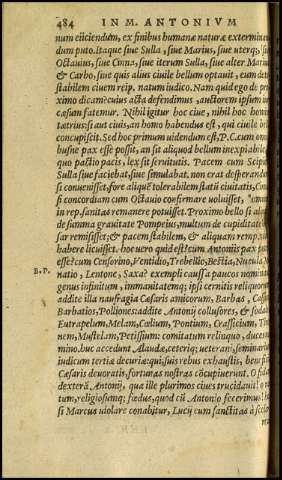 484 IN M. ANTONIVM
num eijciendum, ex finibus humanæ naturæ extermina
dum puto. Itaque siue Sulla, siue Marius, siue uterq;, si
Octauius, siue Cinna, siue iterum Sulla, siue alter Mariu
& Carbo, siue quis alius ciuile bellum optauit, eum dete
stabilem ciuem reip. natum iudico. Nam quid ego de pr
ximo dicam? cuius acta defendimus, auctorem ipsum iur
cæsum fatemur. Nihil igitur hoc ciue, nihil hoc homi
tætrius: si aut ciuis, an homo habendus est, qui ciuile b
concupiscit. Sed hoc primum uidendum est, P.C. cum omn
busne pax esse possit, an sit aliquod bellum inexpiabile,
quo pactio pacis, lex sit seruitutis. Pacem cum Scipi
Sulla siue faciebat, siue simulabat, non erat desperandu
si conuenisset, fore aliquē tolerabilem statū ciuitatis, Cin
si concordiam cum Octauio confirmare uoluisset,
in rep. sanitas remanere potuisset. Proximo bello si aliqu
de summa grauitate Pompeius, multum de cupiditate
sar remisisset; & pacem stabilem, & aliquam remp. nobis
habere licuisset. hoc uero quid est? cum Antonijs pax pot
esse? cum Censorino, Ventidio, Trebellio, Bestia, Nucula M
B. P. natio, Lentone, Saxa? exempli caussa paucos nomina
genus infinitum, immanitatemq; ipsi cernitis reliquorum
addite illa naufragia Cæsaris amicorum, Barbas, Cass
Barbatios, Polliones: addite Antonij collusores, & sodal
Eutrapelum, Melam, Cælium, Pontium, Crassicium, Tir
nem, Mustelam, Petissium: comitatum relinquo, duces
mino. huc accedunt Alaudæ, ceteriq; ueterani, seminariū
iudicum tertiæ decuriæ: qui suis rebus exhaustis, bene
Cæsaris deuoratis, fortunas nostras cōcupiuerunt. O fida
dexterā Antonij, qua ille plurimos ciues trucidauit! o ra
tum, religiosumq; fœdus, quod cū Antonio fecerimus! h
si Marcus uiolare conabitur, Lucij eum sanctitas à sceler